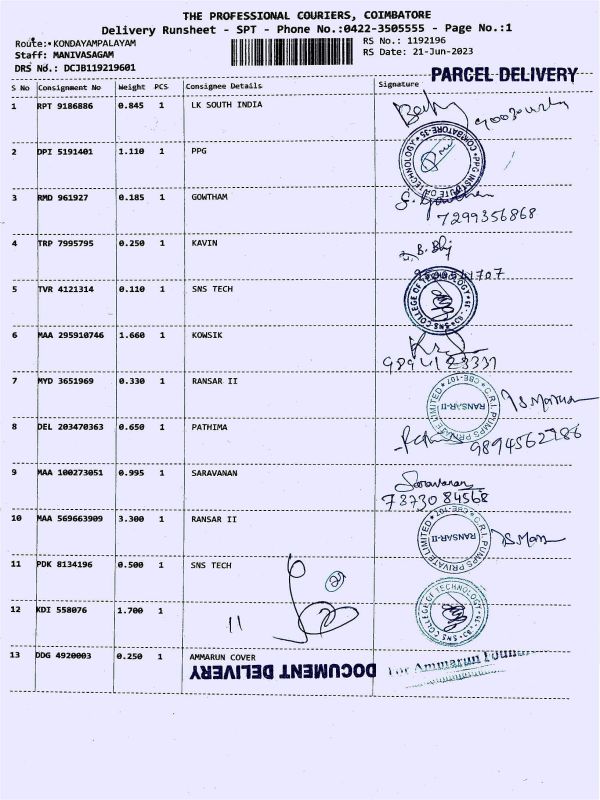 THE PROFESSIONAL COURIERS, COIMBATORE
Delivery Runsheet - SPT - Phone No.:0422-3505555 - Page No.:1
Route: KONDAYAMPALAYAM RS No.: 1192196
Staff: MANIVASAGAM RS Date: 21-Jun-2023
DRS No.: DCJB119219601
PARCEL DELIVERY
S No Consignment No Weight PCS Consignee Details Signature
1 RPT 9186886 0.845 1 LK SOUTH INDIA
2 DPI 5191401 1.110 1 PPG
PPG INSTITUTE OF TECHNOLOGY COIMBATORE-35
3 RMD 961927 0.185 1 GOWTHAM
G. Gowtham
7299356868
4 TRP 7995795 0.250 1 KAVIN
5 TVR 4121314 0.110 1 SNS TECH
SNS COLLEGE OF TECHNOLOGY
6 MAA 295910746 1.660 1 KOWSIK
7 MYD 3651969 0.330 1 RANSAR II
C.R.I. PUMPS PRIVATE LIMITED CBE-107
RANSAR-II
8 DEL 203470363 0.650 1 PATHIMA
9894562786
9 MAA 100273051 0.995 1 SARAVANAN
Saravanan
7373084568
10 MAA 569663909 3.300 1 RANSAR II
C.R.I. PUMPS PRIVATE LIMITED CBE-107
RANSAR-II
11 PDK 8134196 0.500 1 SNS TECH
12 KDI 558076 1.700 1
11
SNS COLLEGE OF TECHNOLOGY
13 DDG 4920003 0.250 1 AMMARUN COVER
DOCUMENT DELIVERY
For Ammarun